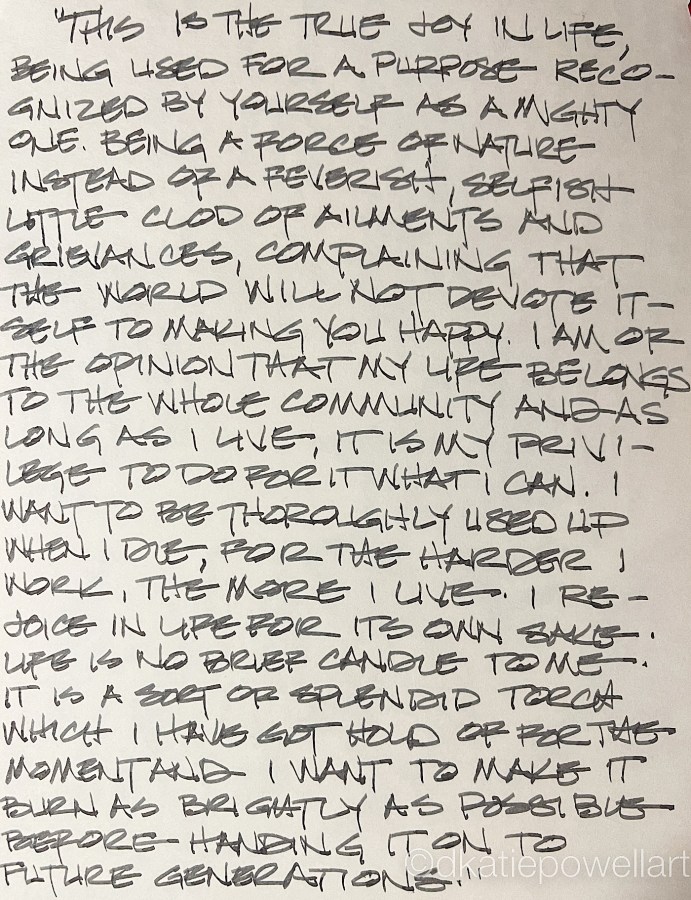 "THIS IS THE TRUE JOY IN LIFE,
BEING USED FOR A PURPOSE RECO-
GNIZED BY YOURSELF AS A MIGHTY
ONE. BEING A FORCE OF NATURE
INSTEAD OF A FEVERISH, SELFISH
LITTLE CLOD OF AILMENTS AND
GRIEVANCES, COMPLAINING THAT
THE WORLD WILL NOT DEVOTE IT-
SELF TO MAKING YOU HAPPY. I AM OF
THE OPINION THAT MY LIFE BELONGS
TO THE WHOLE COMMUNITY AND AS
LONG AS I LIVE, IT IS MY PRIVI-
LEGE TO DO FOR IT WHAT I CAN. I
WANT TO BE THOROUGHLY USED UP
WHEN I DIE, FOR THE HARDER I
WORK, THE MORE I LIVE. I RE-
JOICE IN LIFE FOR ITS OWN SAKE.
LIFE IS NO BRIEF CANDLE TO ME.
IT IS A SORT OF SPLENDID TORCH
WHICH I HAVE GOT HOLD OF FOR THE
MOMENT AND I WANT TO MAKE IT
BURN AS BRIGHTLY AS POSSIBLE
BEFORE HANDING IT ON TO
FUTURE GENERATIONS."
©dkatiepowellart